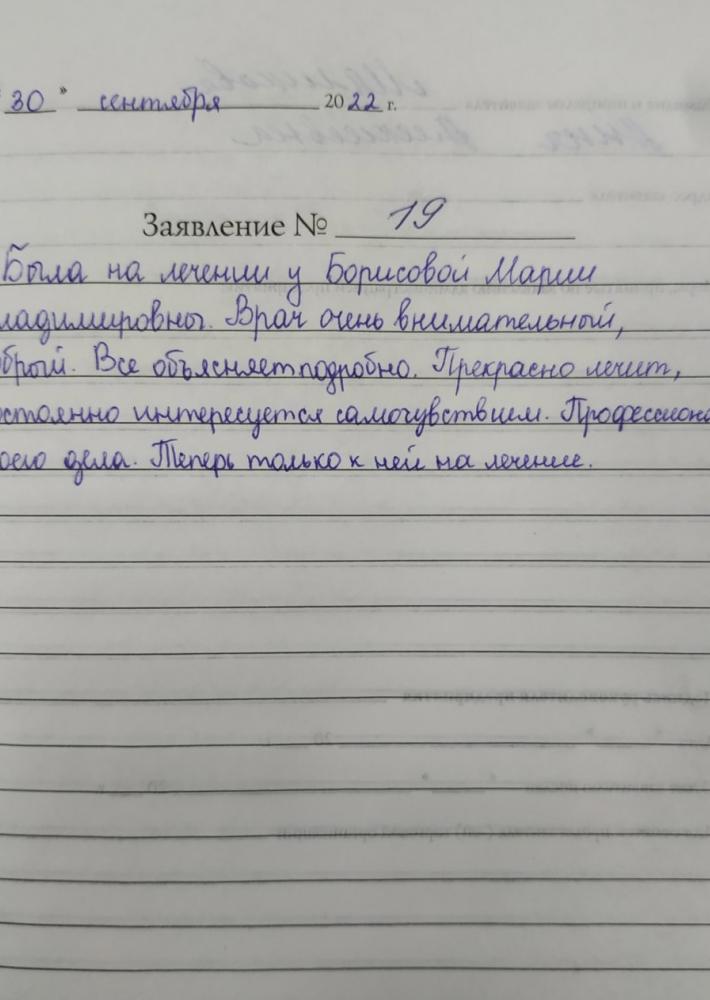 30 » сентября 2022 г.
Заявление № 19
Была на лечении у Борисовой Марии
ладимировны. Врач очень внимательный,
брый. Все объясняет подробно. Прекрасно лечит,
остоянно интересуется самочувствием. Профессиона
оего дела. Теперь только к ней на лечение.